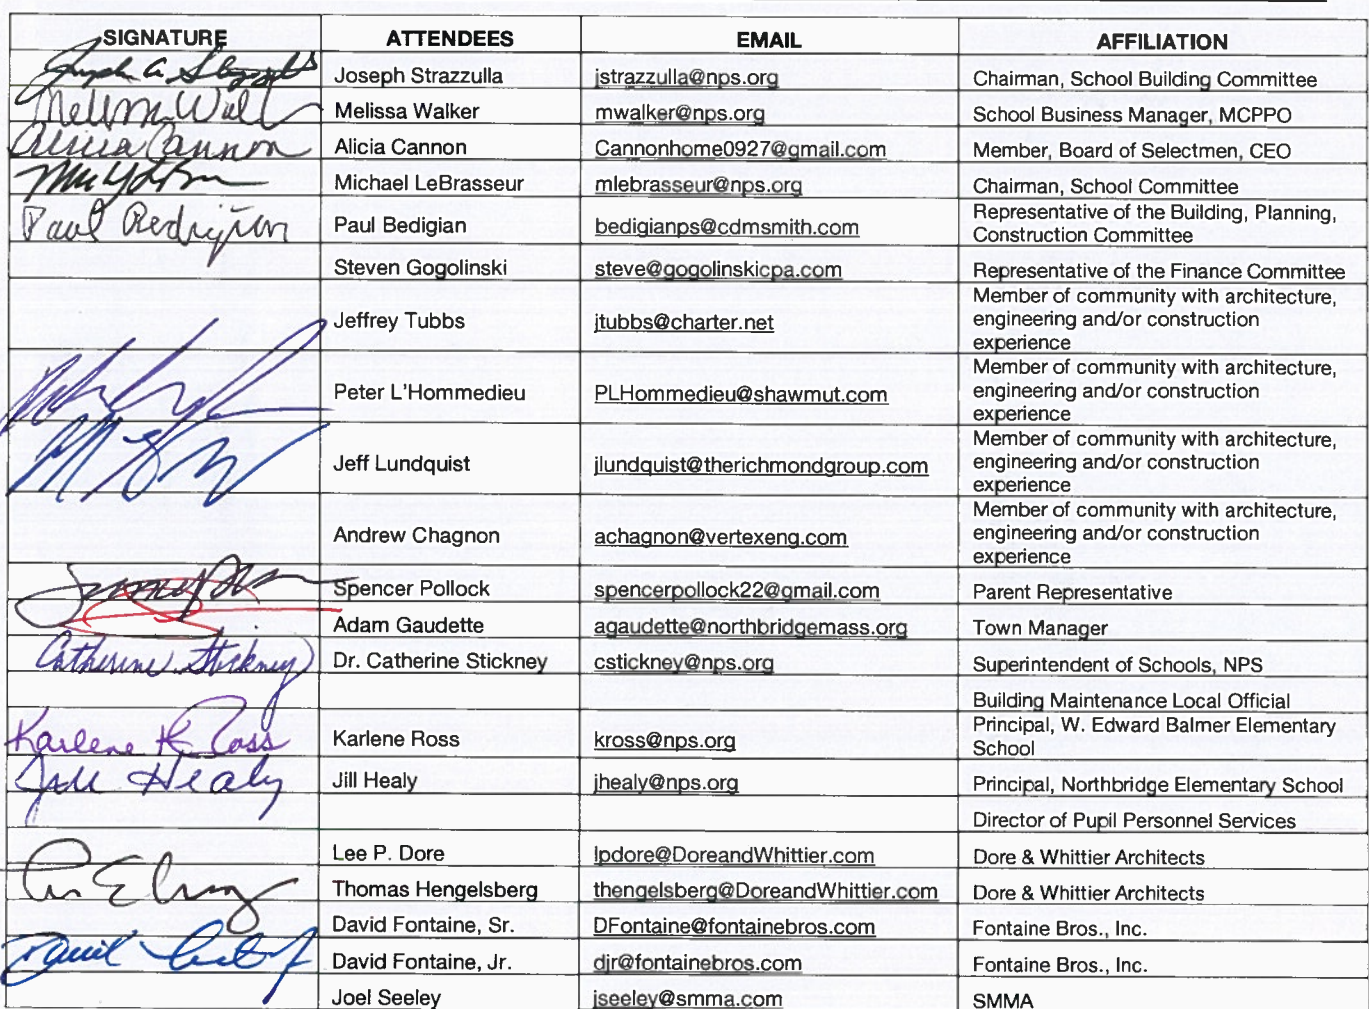 SIGNATURE ATTENDEES EMAIL AFFILIATION
Joseph Strazzulla jstrazzulla@nps.org Chairman, School Building Committee
Melissa Walker mwalker@nps.org School Business Manager, MCPPO
Alicia Cannon Alicia Cannon Cannonhome0927@gmail.com Member, Board of Selectmen, CEO
Michael LeBrasseur mlebrasseur@nps.org Chairman, School Committee
Paul Bedigian Paul Bedigian bedigianps@cdmsmith.com Representative of the Building, Planning,
Construction Committee
Steven Gogolinski steve@gogolinskicpa.com Representative of the Finance Committee
Member of community with architecture,
Jeffrey Tubbs jtubbs@charter.net engineering and/or construction
experience
Member of community with architecture,
Peter L'Hommedieu PLHommedieu@shawmut.com engineering and/or construction
experience
Member of community with architecture,
Jeff Lundquist jlundquist@therichmondgroup.com engineering and/or construction
experience
Member of community with architecture,
Andrew Chagnon achagnon@vertexeng.com engineering and/or construction
experience
Spencer Pollock spencerpollock22@gmail.com Parent Representative
Adam Gaudette agaudette@northbridgemass.org Town Manager
Catherine Stickney Dr. Catherine Stickney cstickney@nps.org Superintendent of Schools, NPS
Building Maintenance Local Official
Karlene K Ross Karlene Ross kross@nps.org Principal, W. Edward Balmer Elementary
School
Jill Healy Jill Healy jhealy@nps.org Principal, Northbridge Elementary School
Director of Pupil Personnel Services
Lee P. Dore lpdore@DoreandWhittier.com Dore & Whittier Architects
Thomas Hengelsberg thengelsberg@DoreandWhittier.com Dore & Whittier Architects
David Fontaine, Sr. DFontaine@fontainebros.com Fontaine Bros., Inc.
David Fontaine, Jr. djr@fontainebros.com Fontaine Bros., Inc.
Joel Seeley jseeley@smma.com SMMA